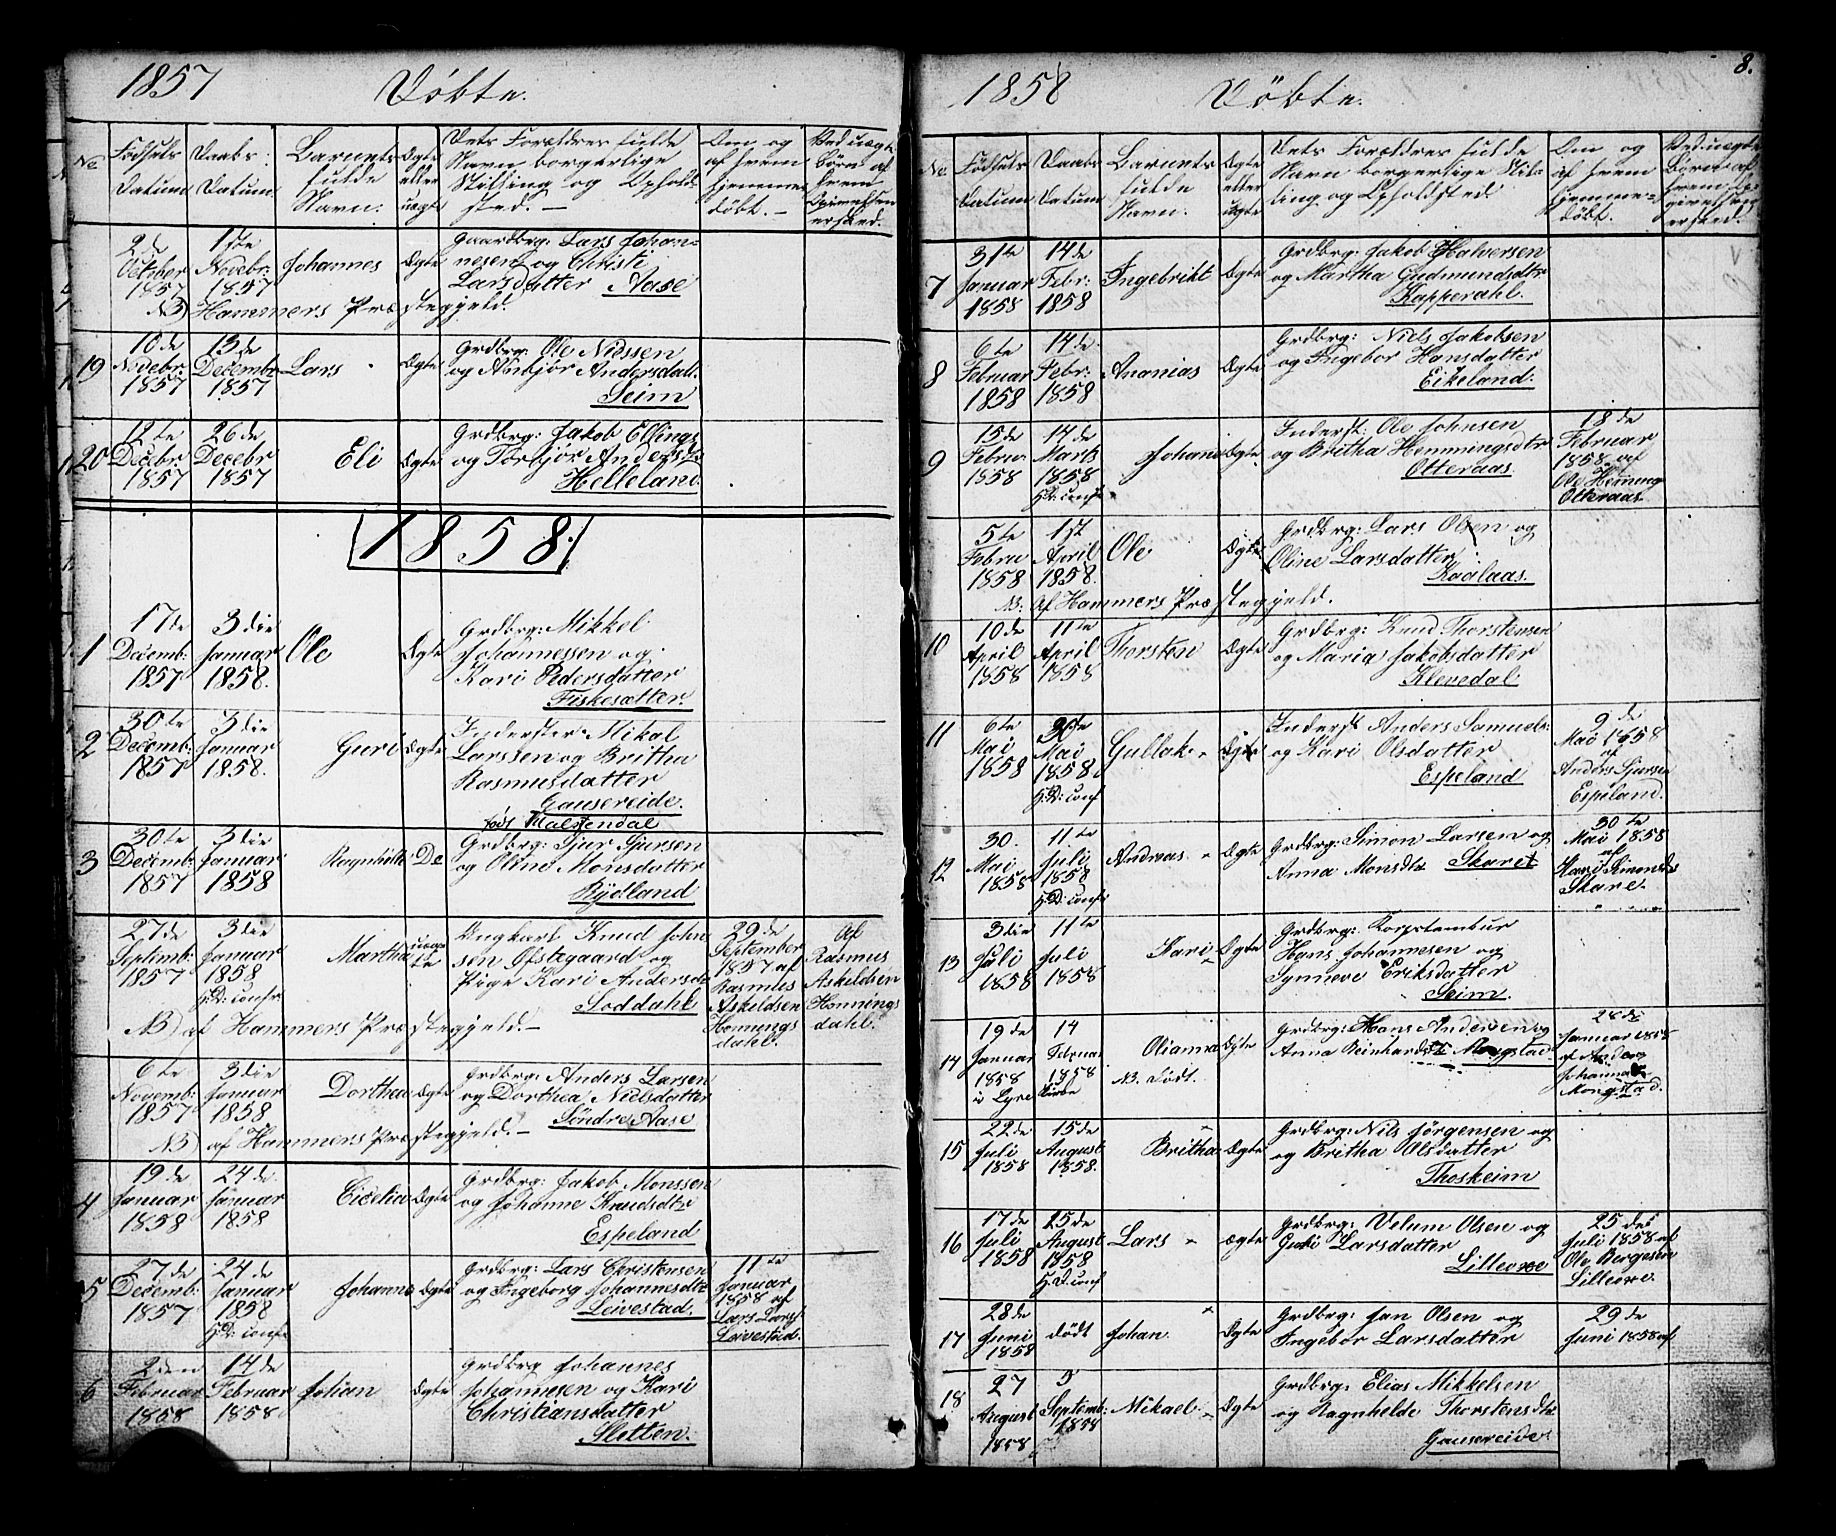 1857 Døbte.
No
Fødsels Datum
Daabs Datum
Barnets fulde Navn.
Ægte eller uægte
Dets Forældres fulde Navn borgerlige Stilling og Opholdsted.
Om og af hvem hjemmedøbt.
Ved uægte Børn af hvem Opivelsen er sked.
2de October 1857
1ste Novebr. 1857
Johannes
Ægte
Gaardbrg: Lars Johannesen og Christi Larsdatter Aase
NB) Hammers Præstegjeld.
19
10de Novebr 1857
13de Decembr 1857
Lars
Ægte
Grdbrg: Ole Nilssen
og Anbjør Andersdat:
Seim
20
12te Decebr. 1857
26de Decebr 1857
Eli
Ægte
Grdbrg: Jakob Ellings
og Torbjør Andersdt
Helleland
1858.
1
17de Decemb: 1857
3die Januar 1858.
Ole
Ægte
Grdbrg: Mikkel
Johannessen og
Kari Pedersdatter
Fiskesætter.
2
30te Decemb: 1857
3die Januar 1858.
Guri
Ægte
Inderster Mikal
Larssen og Britha
Rasmusdatter
Gausereide.
født Malstendal
3
30te Decemb: 1857
3die Januar 1858
Ragnhilde
De
Grdbrg: Sjur Sjursen
og Oline Monsdatter
Rydland
27de Septemb: 1857
3die Januar 1858
H.D: confr
Martha
uægte
Ungkarl Knud Johnsen Øfstegaard og
Pige Kari Andersdt
Soddahl
29de September 1857 af Rasmus Askeldsen Hennings dahl.
Af Rasmus Askeldsen Hennings dahl.
NB) af Hammers Præstegjeld.
6te Novemb: 1857
3die Januar 1858
Dorthea
Ægte
Grdbrg: Anders Larsen
og Dorthea Nielsdatter
Söndre Aase
NB) af Hammers Præstegjeld.
4
19de Januar 1858
24de Januar 1858
Cicilia
Ægte
Grdbrg: Jakob Monssen
og Johanne Knudsdtr
Espeland
5
27de Decemb: 1857
24de Januar 1858
H.D: confr
Johanne
Ægte
Grdbrg: Lars Christensen
og Ingeborg Johannesdtr
Leivestad.
11te Januar 1858 af Lars Larss: Leivestad.
6
2den Februar 1858
14de Februar 1858
Johan
Ægte
Grdbrg Johannes
Johannesen og Kari
Christiansdatter
Sletten.
1858 Döbte. 8.
No
Fødsels Datum
Daabs Datum
Barnets fulde Navn.
Ægte eller uægte
Dets Forældres fulde Navn borgerlige Stilling og Opholdsted.
Om og af hvem hjemmedøbt.
Ved uægte Børn af hvem Opgivelsen er sked.
7
31te Januar 1858
14de Febr: 1858
Ingebrikt
Ægte
Grdbrg: Jakob Halversen
og Martha Gudmundsdtr
Kapperdahl.
8
6te Februar 1858
14de Febr: 1858
Ananias
Ægte
Grdbrg: Niels Jakobsen
og Ingebor Hansdatter
Eikeland.
9
15de Febru 1858
14de Marts 1858
H.D: confr
Johan
Ægte
Inderst: Ole Johnsen
og Britha Hemmingsdtr
Otteraas.
18de Februar 1858 af Ole Heming Otteraas
5te Febru 1858
1st April 1858.
Ole
Ægte
Grdbrg: Lars Olsen og
Oline Larsdatter
Kaalaas.
NB. Af Hammers Præstegjeld.
10
10de April 1858
11te April 1858
Thorsten
Ægte
Grdbrg: Knud Thorstensen
og Maria Jakobsdatter
Klevedal
11
6te Mai 1858
Mai 1858.
H.D: conf
Gullak
Ægte
Inderst Anders Samuels:
og Kari Olsdatter
Espeland
9de Mai 1858 af Anders Sjursen Espeland.
12
30. Mai 1858
11te Juli 1858
H.D: confr
Andreas.
Ægte
Grdbrg: Simon Larsen og
Anna Monsdtr Skaret
30te Mai 1858 af Kari Simonsdt Skare.
13
3die Juli 1858
11te Juli 1858
Kari
Ægte
Grdbrg: Korpstambur
Hans Johannesen og
Synneve Eriksdatter
Seim.
14
19de Januar 1858
i Lyre Kirke
14 Februar 1858
Olianna
NB. Födt.
Ægte
Grdbrg: Hans Andersen og
Anna Reinhardsdtr Mongstad
28de Januar 1858 af Anders Johannes Mongstad.
15
22de Juli 1858
15de August 1858.
Britha
Ægte
Grdbrg: Nils Jörgensen og
og Britha Olsdatter
Thoskeim
16
17de Juli 1858
25de August 1858
H.D: conf
Lars
ægte
Grdbrg: Velum Olsen og
Guri Larsdatter
Lilleoxe
25de Juli 1858 af Ole Børgesen Lilleoxe.
17
28de Juni 1858
dødt
Johan.
Ægte
Grdbrg: Jan Olsen og
Ingebor Larsdatter
29de Juni 1858 af
18
27 August 1858
5 Septemb: 1858
Mikael
Ægte
Grdbrg: Elias Mikkelsen
og Ragnhelde Thorstensdtr
Gausereide.